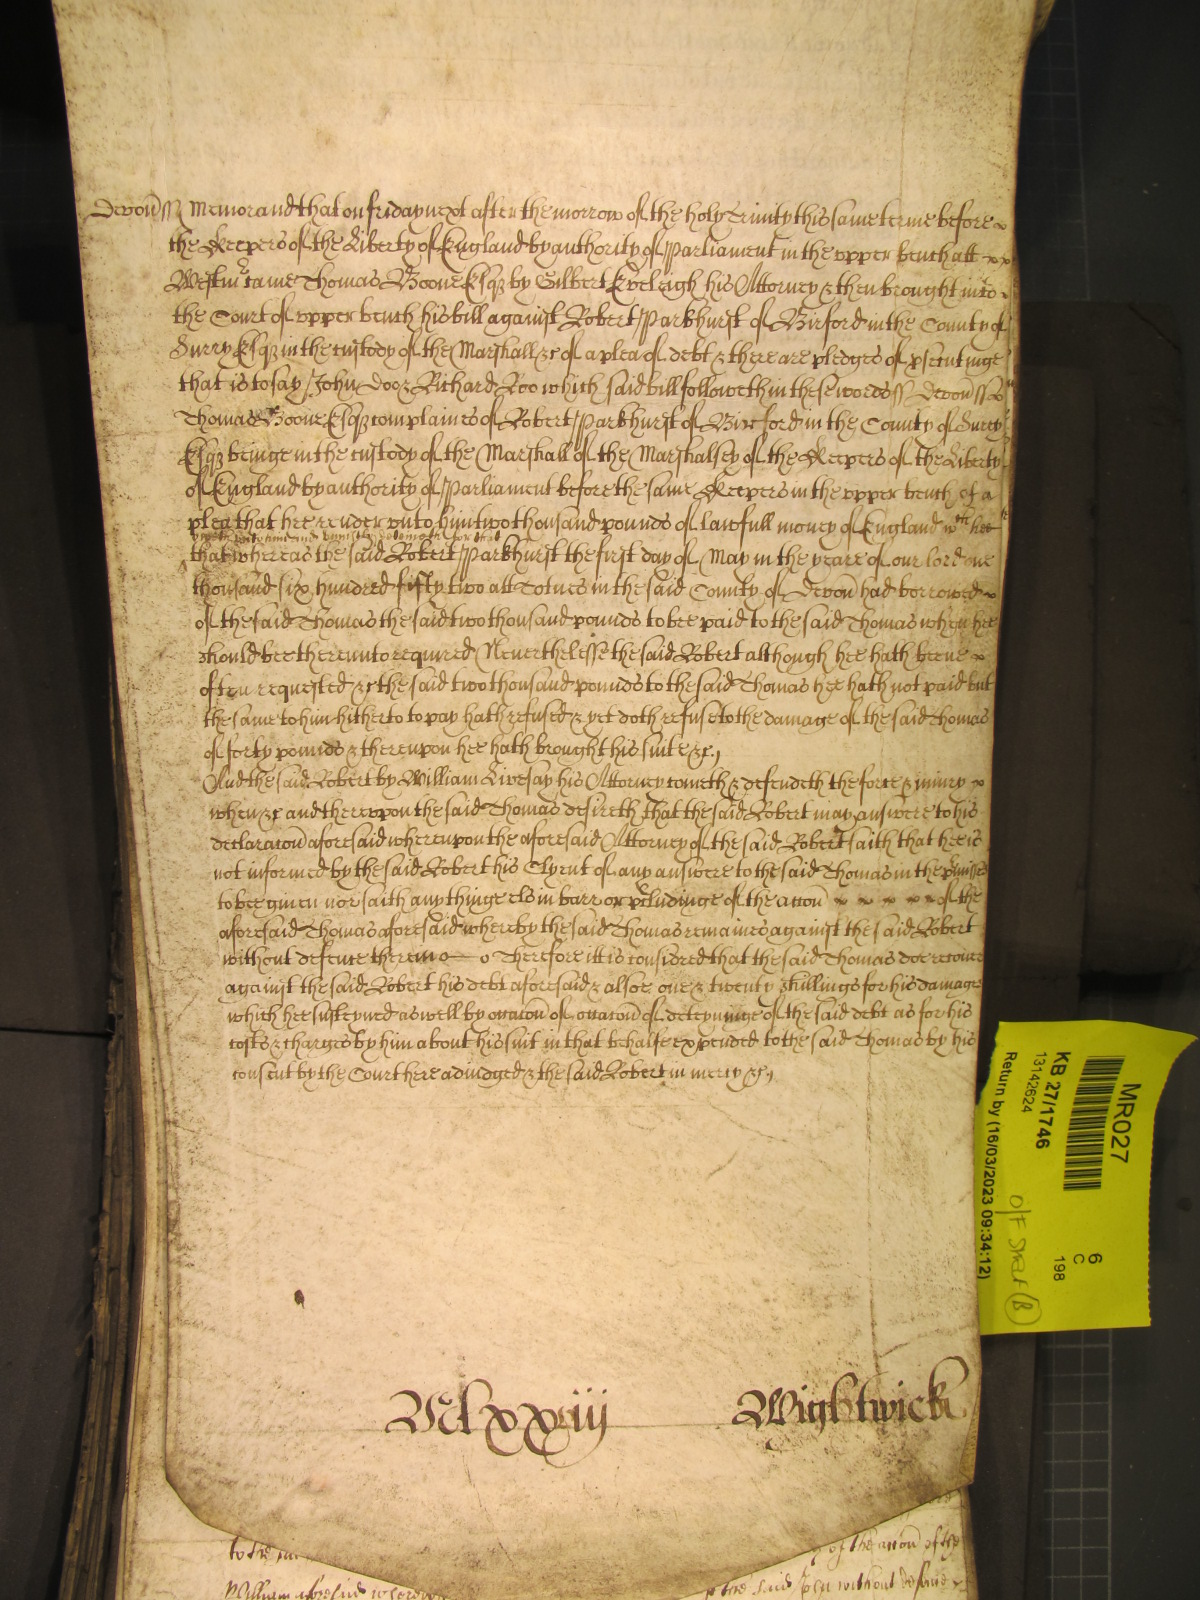 Devon ss Memorand that on friday next after the morrow of the holy Trinity this same terme before
the Keepers of the Liberty of England by authority of Parliament in the upper bench att
Westmr came Thomas Boone Esqz by Gilbert Eveleigh his Attorney & then brought into
the Court of upper bench his bill against Robert Parkhurst of Pirford in the County of
Surry Esqz in the custody of the Marshall &c of a plea of debt & there are pledges of psecutinge
that is to say John Doo & Richard Roo which said bill followeth in these words ss Devon ss
Thomas Boone Esqz complaines of Robert Parkhurst of Pirford in the County of Surry
Esqz beinge in the custody of the Marshall of the Marshalsey of the Keepers of the Liberty
of England by authority of Parliament before the same Keepers in the upper bench of a
plea that hee render unto him two thousand pounds of lawfull money of England wch hee
that whereas the said Robert Parkhurst the first day of May in the yeare of our lord one
thousand six hundred fifty two att Totnes in the said County of Devon had borrowed
of the said Thomas the said two thousand pounds to bee paid to the said Thomas when hee
should bee thereunto required Neverthelesse the said Robert although hee hath beene
often requested &c the said two thousand pounds to the said Thomas hee hath not paid but
the same to him hitherto to pay hath refused & yet doth refuse to the damage of the said Thomas
of forty pounds & thereupon hee hath brought his suite &c.
And the said Robert by William Livesay his Attorney cometh & defendeth the force & iniury
when &c and thereupon the said Thomas desireth that the said Robert may answere to his
declaracon aforesaid whereupon the aforesaid Attorney of the said Robert saith that hee is
not informed by the said Robert his Clyent of any answere to the said Thomas in the pmisses
to bee given nor saith any thinge els in barr or pcludinge of the accon of the
aforesaid Thomas aforesaid whereby the said Thomas remaines against the said Robert
without defence therein o o Therefore itt is considred that the said Thomas doe recover
against the said Robert his debt aforesaid & alsoe one & twenty shillings for his damages
which hee susteyned as well by occacon of occacon of deteyninge of the said debt as for his
costs & charges by him about his suit in that behalfe expended to the said Thomas by his
consent by the Court here adiudged & the said Robert in mercy &c.
Mlxxiij Wightwick
MR027
KB 27/1746
13142624
Return by (16/03/2023 09:34:12)
6
C
198
O/F
B
to the
of the accon of the
William aforesaid
the said John without defence